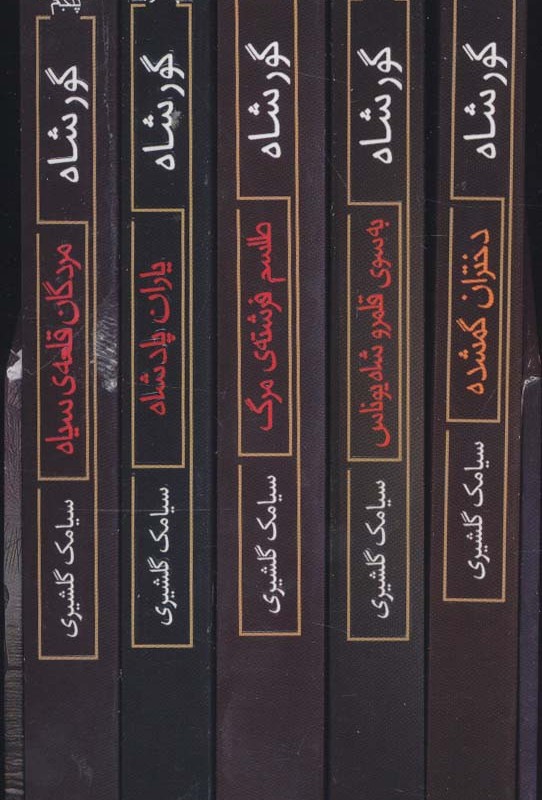 گورشاه
دختران گمشده
سیامک گلشیری
گورشاه
به‌سوی قلمرو شاه یوناس
سیامک گلشیری
گورشاه
طلسم فرشته‌ی مرگ
سیامک گلشیری
گورشاه
یاران پادشاه
سیامک گلشیری
گورشاه
مردگان قلعه‌ی سیاه
سیامک گلشیری